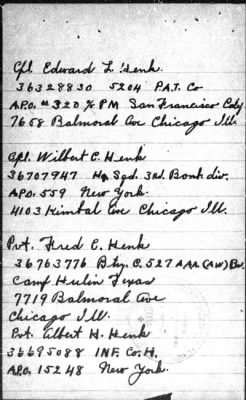 Cpl. Edward L. Henk.
36328830 5204 P.A.T. Co
A.P.O. #320 % PM San Francisco Caly
7658 Balmoral Ave Chicago Ill.
Cpl. Wilbert C. Henk
36707947 Hq. Sqd. 3rd. Bomb. div.
A.P.O. 559 New York
4103 Kimbal Ave Chicago Ill.
Pvt. Fred C. Henk
36763776 Bty. C. 527 A.A.A. (A.W.) Bn.
Camp Hulin Texas
7719 Balmoral Ave
Chicago Ill.
Pvt. Albert H. Henk
36695088 INF. Co. H.
A.P.O. 15248 New York